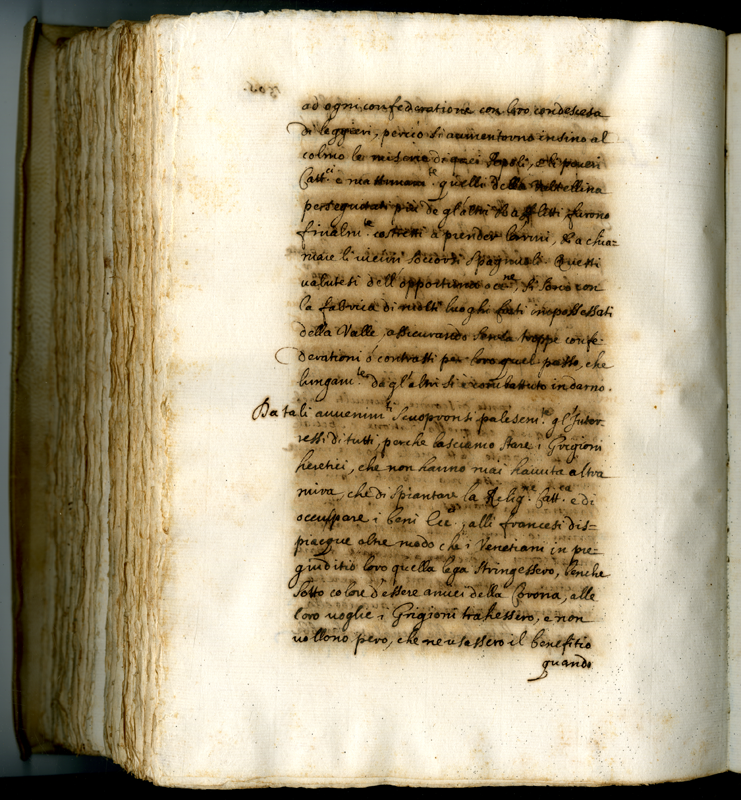 ad ogni confederatione con loro condescesa
di leggieri, perciò si aumentorno insino al
colmo le miserie di quei Popoli, e li poveri
Catt.ci e massimam.te quelli della Valtellina
perseguitati più de gl'altri & afflitti furono
finalm.te costretti a prender l'armi, & a chia-
mare li vicini soccorsi Spagnuoli. Questi
valutisi dell'opportuna occ.ne, si sono con
la fabrica di molti luoghi forti impossessati
della Valle, assicurando senza troppe confe-
derationi ò contratti per loro quel passo, che
lungam.te da gl'altri si è combattuto indarno.
Da tali avvenim.ti scuopronsi palesem.te gl'Inter-
essi di tutti, perche lasciamo stare i Grigioni
heretici, che non hanno mai havuta altra
mira, che di spiantare la Relig.ne Catt.ca e di
occuppare i beni Ecc.ci, alli francesi dis-
piacque oltre modo che i Venetiani in pre-
giuditio loro quella lega stringessero, benche
sotto colore d'essere amici della Corona, alle
loro voglie i Grigioni trahessero, e non
vollono pero, che ne usassero il benefitio
quando